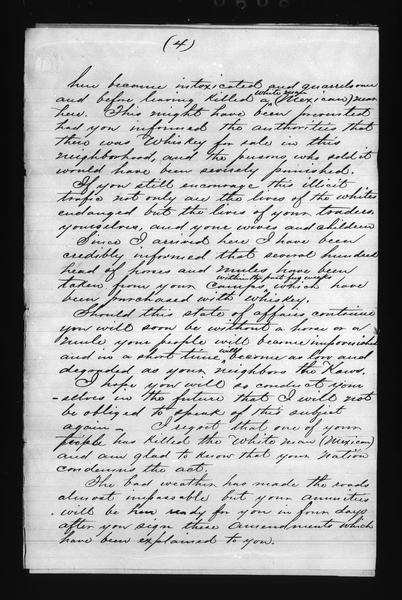 (4)
here became intoxicated and quarrelsome
and before leaving killed a white man (Mexican) near
here. This might have been prevented
had you informed the authorities that
there was Whiskey for sale in this
neighborhood, and the persons who sold it
would have been severely punished.
If you still encourage this illicit
trafic not only are the lives of the whites
endanged but the lives of your traders
yourselves, and your wives and children
Since I arrived here I have been
credibly informed that several hundred
head of horses and mules have been
taken from your Camps, within the past few weeks which have
been purchased with whiskey.
Should this state of affairs continue
you will soon be without a horse or a
mule your people will become impoverished
and in a short time, will become as low and
degraded as your neighbors the Kaws.
I hope you will so conduct your
-selves in the future that I will not
be obliged to speak of this subject
again - I regret that one of your
people has killed the White man (Mexican)
and am glad to know that your nation
condemns the act.
The bad weather has made the roads
almost impassable but your annuities
will be here ready for you in four days
after you sign these amendments which
have been explained to you.